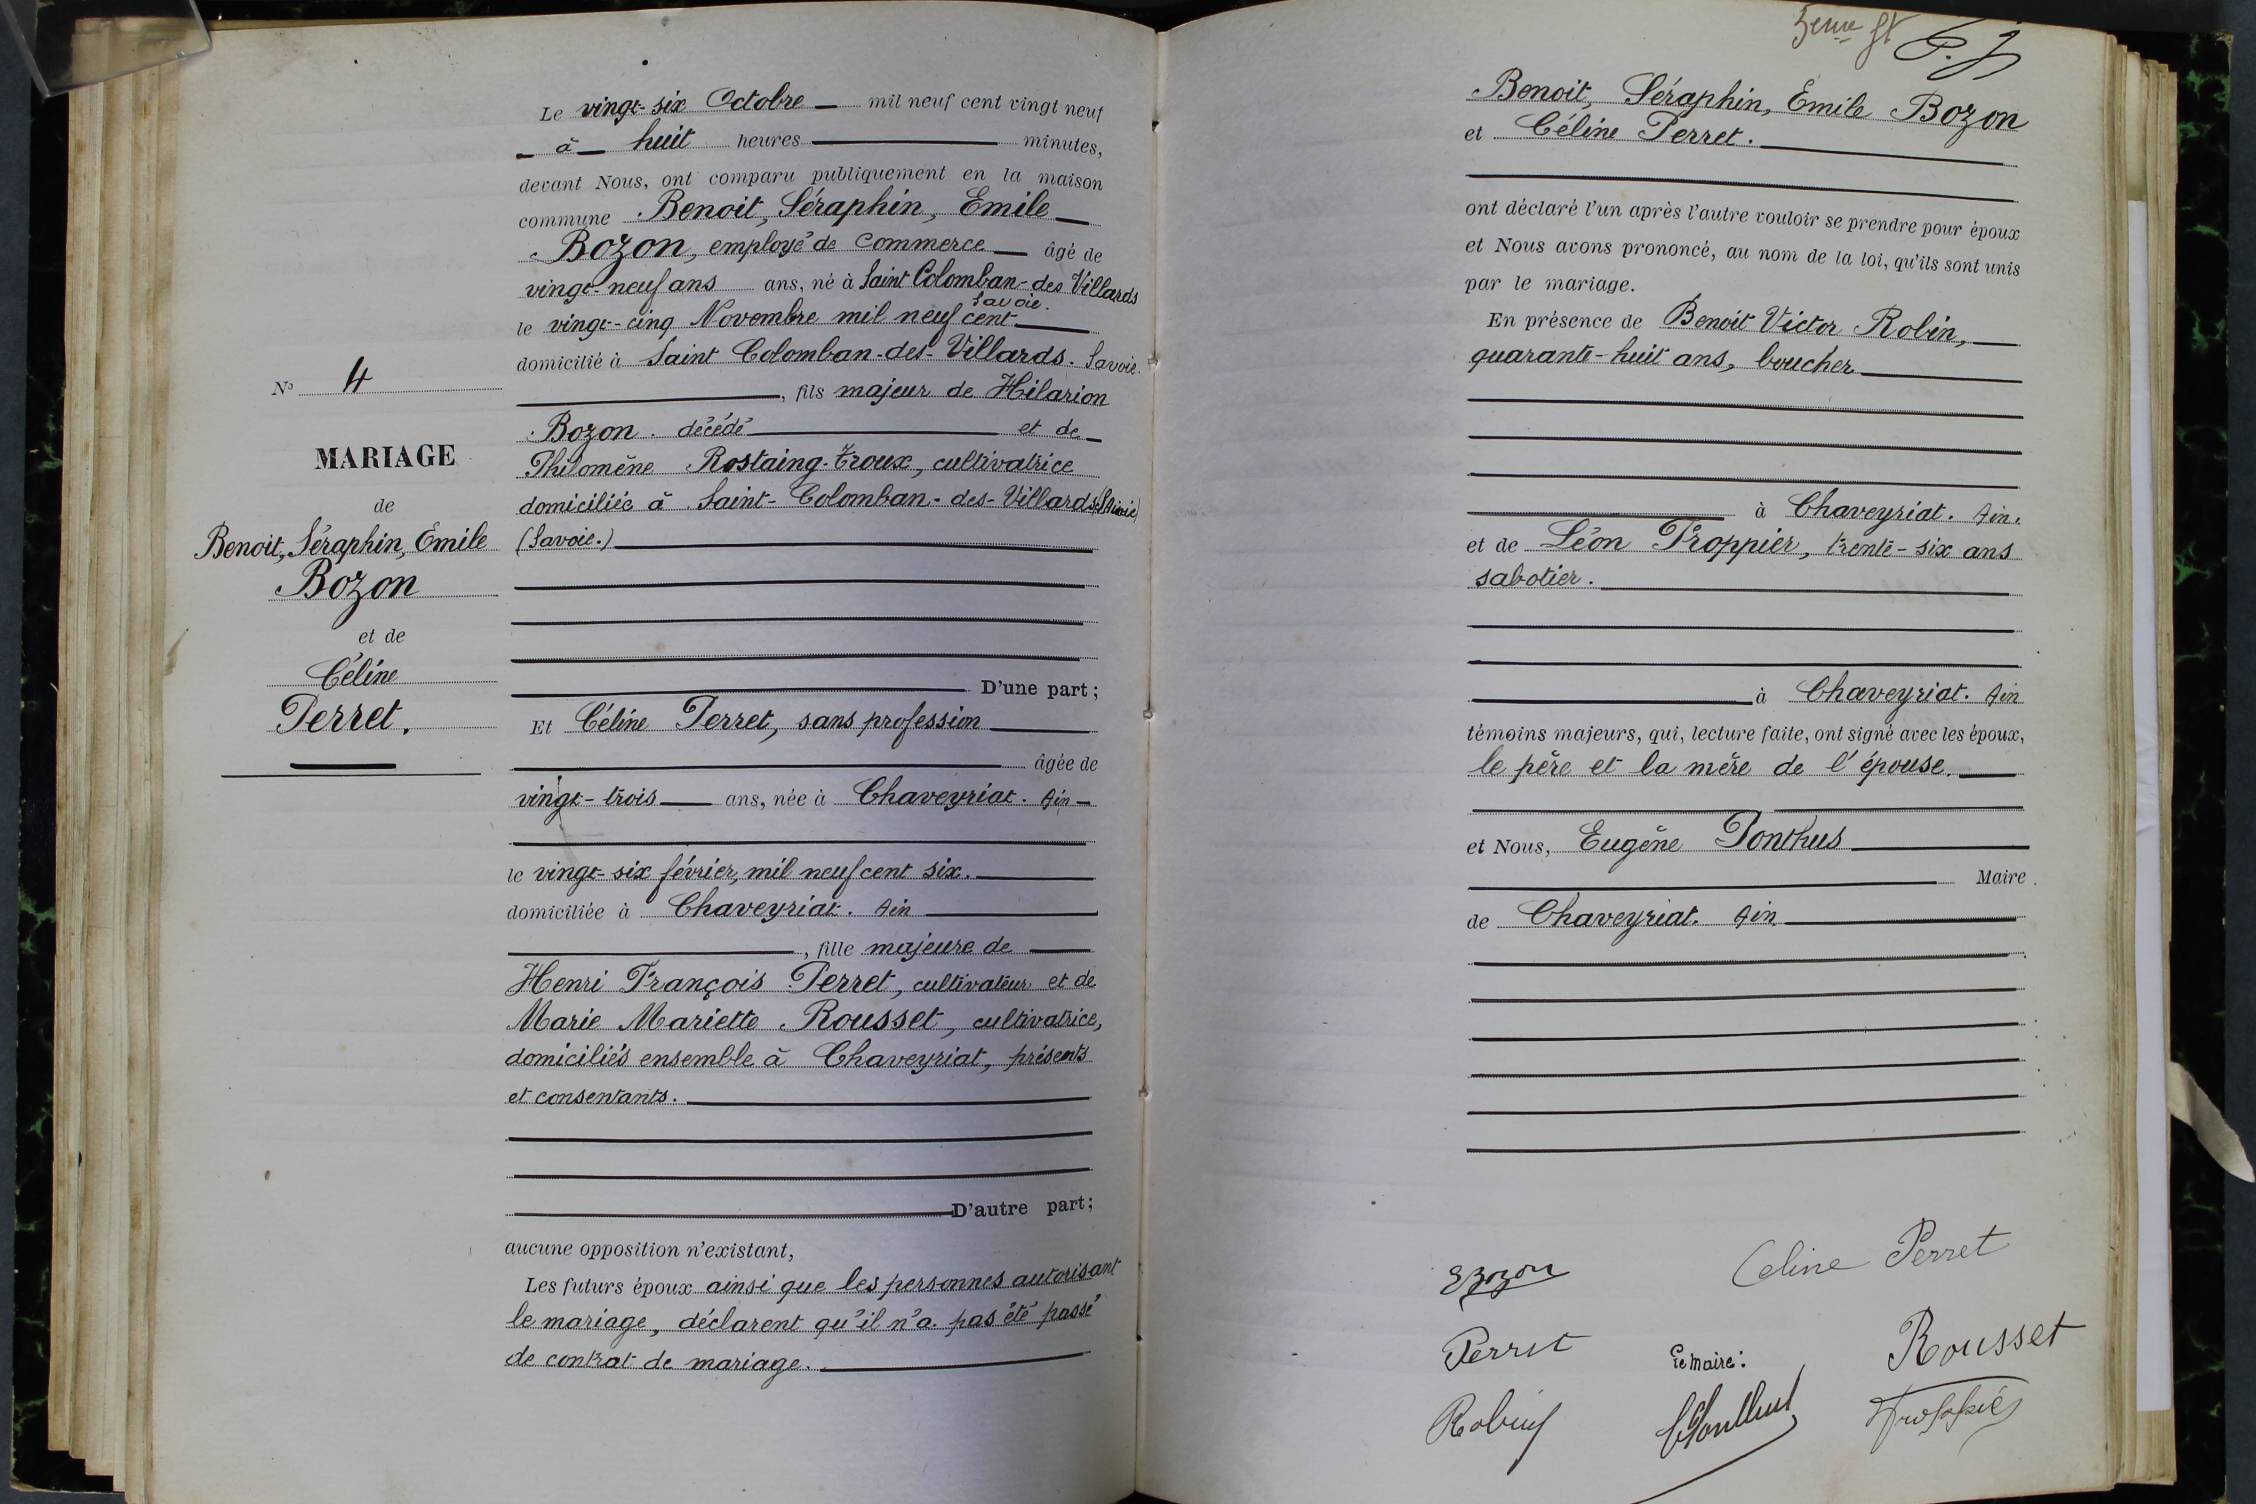 N° 4
MARIAGE
de
Benoit, Séraphin, Emile
Bozon
et de
Céline
Perret.
Le vingt-six Octobre mil neuf cent vingt neuf
à huit heures minutes,
devant Nous, ont comparu publiquement en la maison
commune Benoit, Séraphin, Emile
Bozon, employé de Commerce âgé de
vingt-neuf ans ans, né à Saint Colomban-des Villards
Savoie.
le vingt-cinq Novembre mil neuf cent
domicilié à Saint Colomban-des-Villards. Savoie.
, fils majeur de Hilarion
Bozon. décédé et de
Philomène Rostaing-Troux, cultivatrice
domiciliée à Saint-Colomban-des-Villards (Savoie)
(Savoie.)
D'une part;
Et Céline Perret, sans profession
âgée de
vingt-trois ans, née à Chaveyriat. Ain
le vingt-six février, mil neuf cent six.
domiciliée à Chaveyriat. Ain
, fille majeure de
Henri François Perret, cultivateur et de
Marie Mariette Rousset, cultivatrice,
domiciliés ensemble à Chaveyriat, présents
et consentants.
D'autre part;
aucune opposition n'existant,
Les futurs époux ainsi que les personnes autorisant
le mariage, déclarent qu'il n'a pas été passé
de contrat de mariage.
5eme ft
Benoit, Séraphin, Emile Bozon
et Céline Perret.
ont déclaré l'un après l'autre vouloir se prendre pour époux
et Nous avons prononcé, au nom de la loi, qu'ils sont unis
par le mariage.
En présence de Benoit Victor Robin,
quarante-huit ans, boucher
à Chaveyriat. Ain.
et de Léon Troppier, trente-six ans
sabotier.
à Chaveyriat. Ain
témoins majeurs, qui, lecture faite, ont signé avec les époux,
le père et la mère de l'épouse.
et Nous, Eugène Ponthus
Maire
de Chaveyriat. Ain
E Bozon
Celine Perret
Perret
Le Maire:
Rousset
Robin